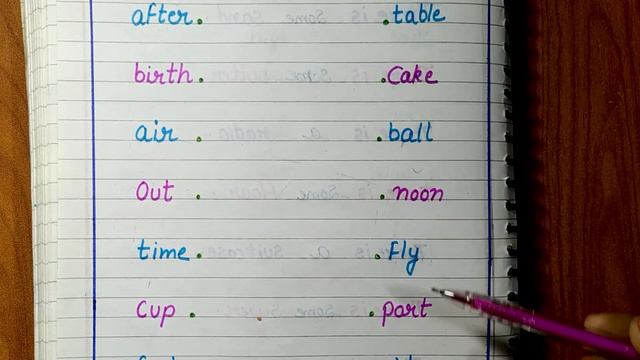 after. .table
birth. .Cake
air . .ball
Out . . noon
time . . Fly
Cup . . part